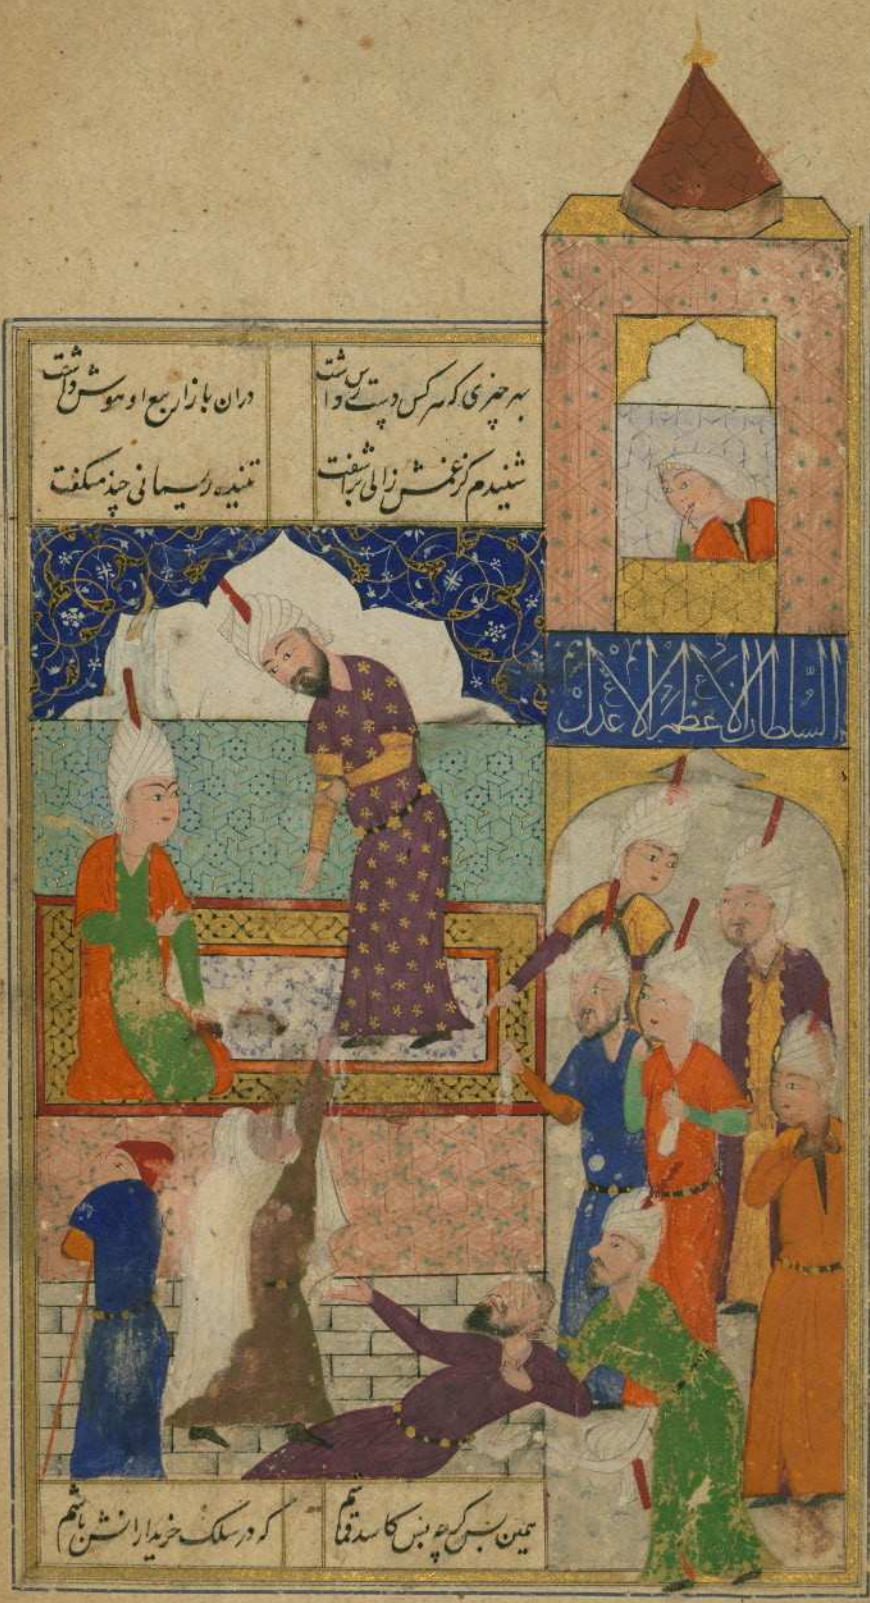 بهر چیزی که هر کس دست رس داشت
دران بازار بیع او هوس داشت
شنیدم کز غمش زالی برآشفت
تنیده ریسمانی چند میگفت
السلطان الاعظم الاعدل
همین بس گرچه بس کاسد قماشم
که در سلک خریدارانش باشم